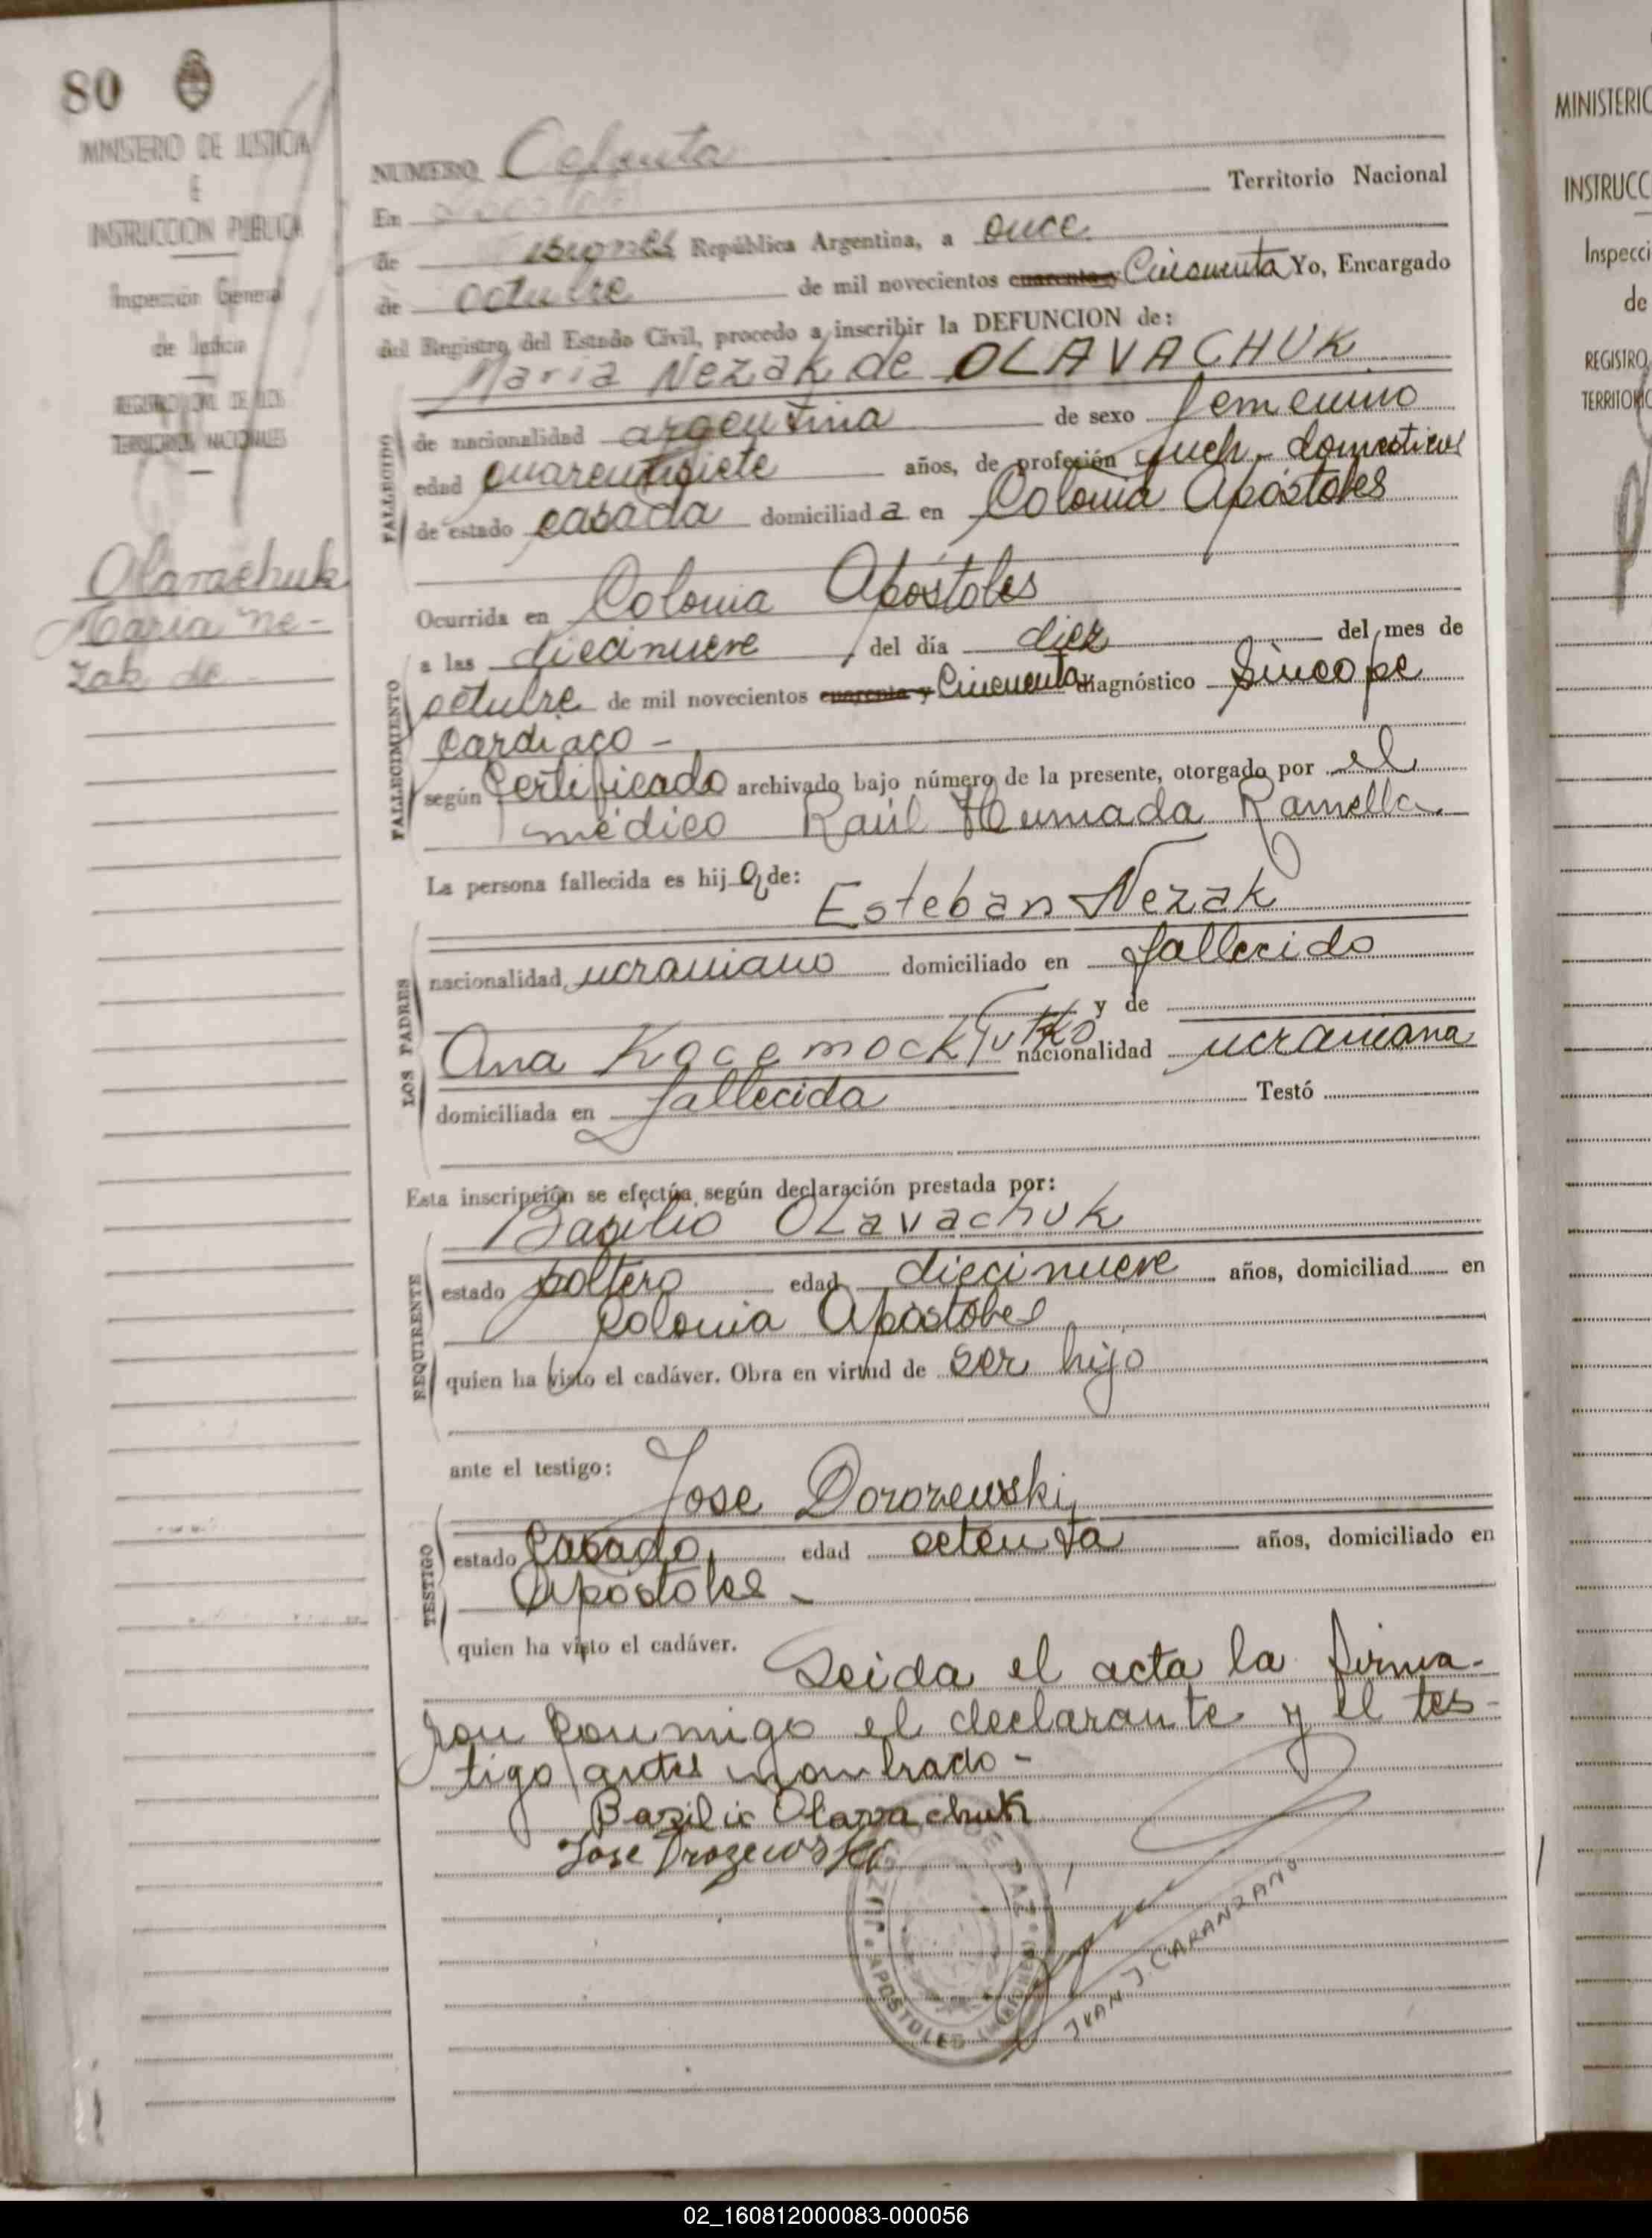 80
MINISTERIO DE JUSTICIA
E
INSTRUCCION PUBLICA
Inspección General
de Justicia
REGISTRO CIVIL DE LOS
TERRITORIOS NACIONALES
Olavachuk
Maria Ne-
zak de -
NUMERO Ochenta
En Apóstoles Territorio Nacional
de Misiones República Argentina, a once
de octubre de mil novecientos cuarenta y Cincuenta Yo, Encargado
del Registro del Estado Civil, procedo a inscribir la DEFUNCION de:
Maria Nezak de OLAVACHUK
FALLECIDO
de nacionalidad argentina de sexo femenino
edad cuarentisiete años, de profesión queh. domesticos
de estado casada domiciliada en Colonia Apóstoles
FALLECIMIENTO
Ocurrida en Colonia Apóstoles
a las diecinueve del día diez del mes de
octubre de mil novecientos cuarenta y Cincuenta diagnóstico Síncope
cardiaco -
según certificado archivado bajo número de la presente, otorgado por el
médico Raúl Humada Ramella
La persona fallecida es hija de:
Esteban Nezak
LOS PADRES
nacionalidad ucraniano domiciliado en fallecido
y de
Ana nacionalidad ucraniana
domiciliada en fallecida Testó
Esta inscripción se efectúa según declaración prestada por:
Basilio OLavachuk
REQUIRENTE
estado soltero edad diecinueve años, domiciliad en
Colonia Apóstoles
quien ha visto el cadáver. Obra en virtud de ser hijo
ante el testigo:
Jose Dorozewski
TESTIGO
estado Casado edad setenta años, domiciliado en
Apóstoles -
quien ha visto el cadáver. Leida el acta la firma-
ron conmigo el declarante y el tes-
tigo antes nombrado -
Bazilio Olavachuk
Jose Drozewski
JUZG DE PAZ
APOSTOLES (MISIONES)
JUAN J. CARANZANO
MINISTERIO
INSTRUCC
Inspecci
de
REGISTRO
TERRITORIO
02_160812000083-000056